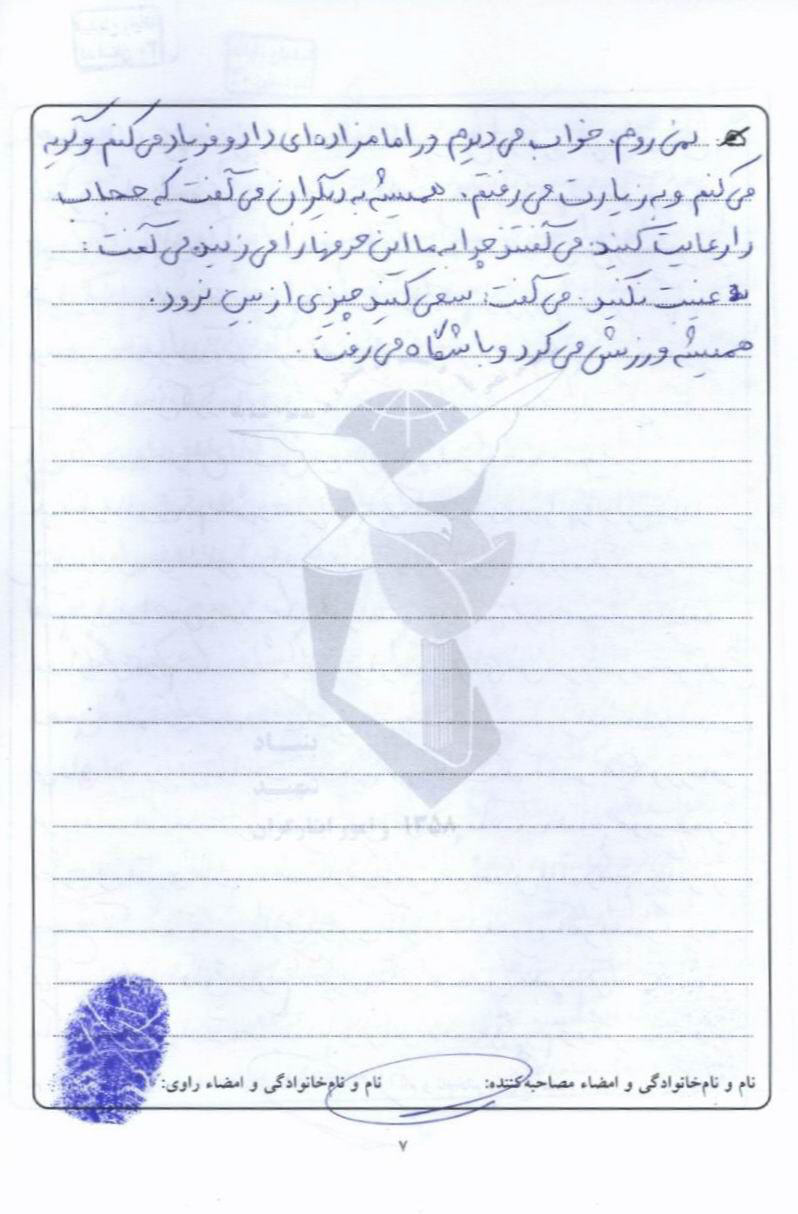 نمی روم. خواب می دیدم در امامزاده ای داد و فریاد می کنم و گریه
می کنم و به زیارت می رفتم. همیشه به دیگران می گفت که حجاب
را رعایت کنید. می گفتند چرا به ما این حرفها را می زنید می گفت:
غیبت نکنید. می گفت: سعی کنید چیزی از بین نرود.
همیشه ورزش می کرد و باشگاه می رفت.
بنیاد
شهید
و امور ایثارگران
۱۳۵۸
نام و نام‌خانوادگی و امضاء مصاحبه‌کننده: نام و نام‌خانوادگی و امضاء راوی:
۷